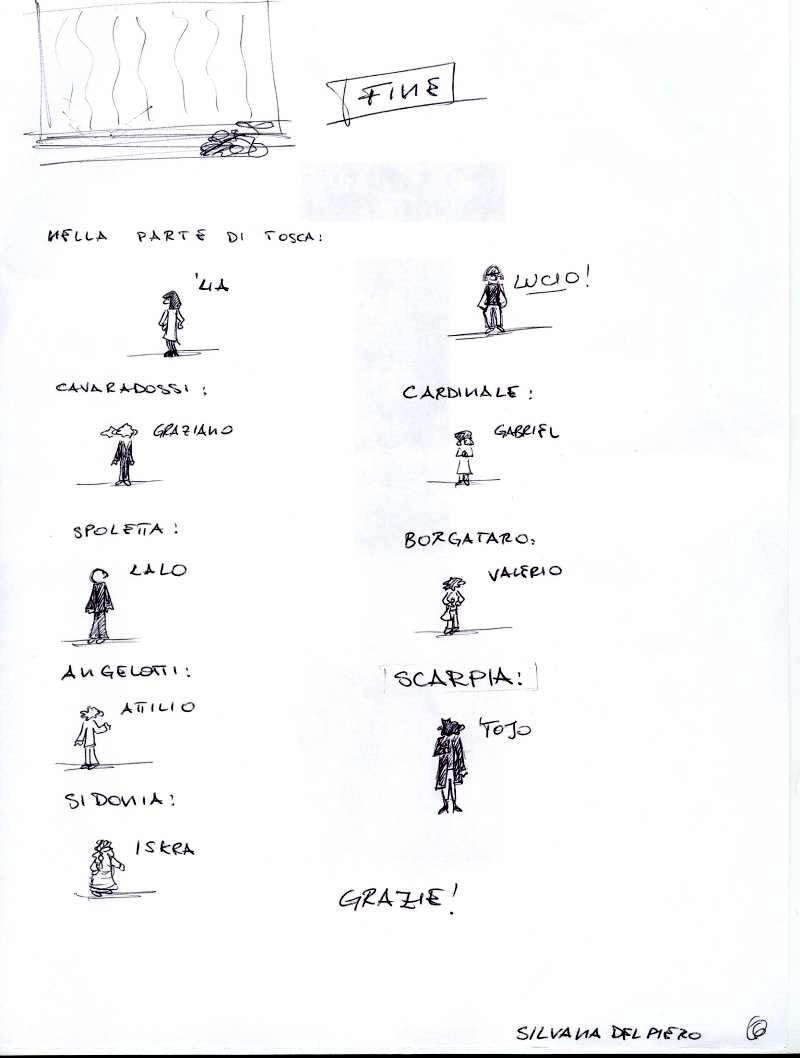 FINE
NELLA PARTE DI TOSCA:
'LIA
LUCIO!
CAVARADOSSI:
GRAZIANO
CARDINALE:
GABRIEL
SPOLETTA:
LALO
BORGATARO:
VALERIO
ANGELOTTI:
ATTILIO
SCARPIA:
'TOJO
SIDONIA:
ISKRA
GRAZIE!
SILVANA DEL PIERO
6